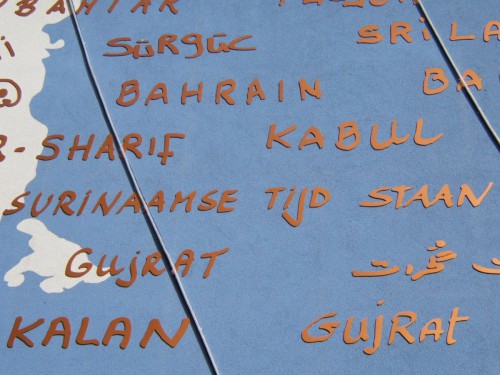 Sürgüc SRi LA
BAHRAIN BA
R-SHARIF KABUL
SURINAAMSE TijD STAAN
GUjRAT گجرات
KALAN GUjRAt